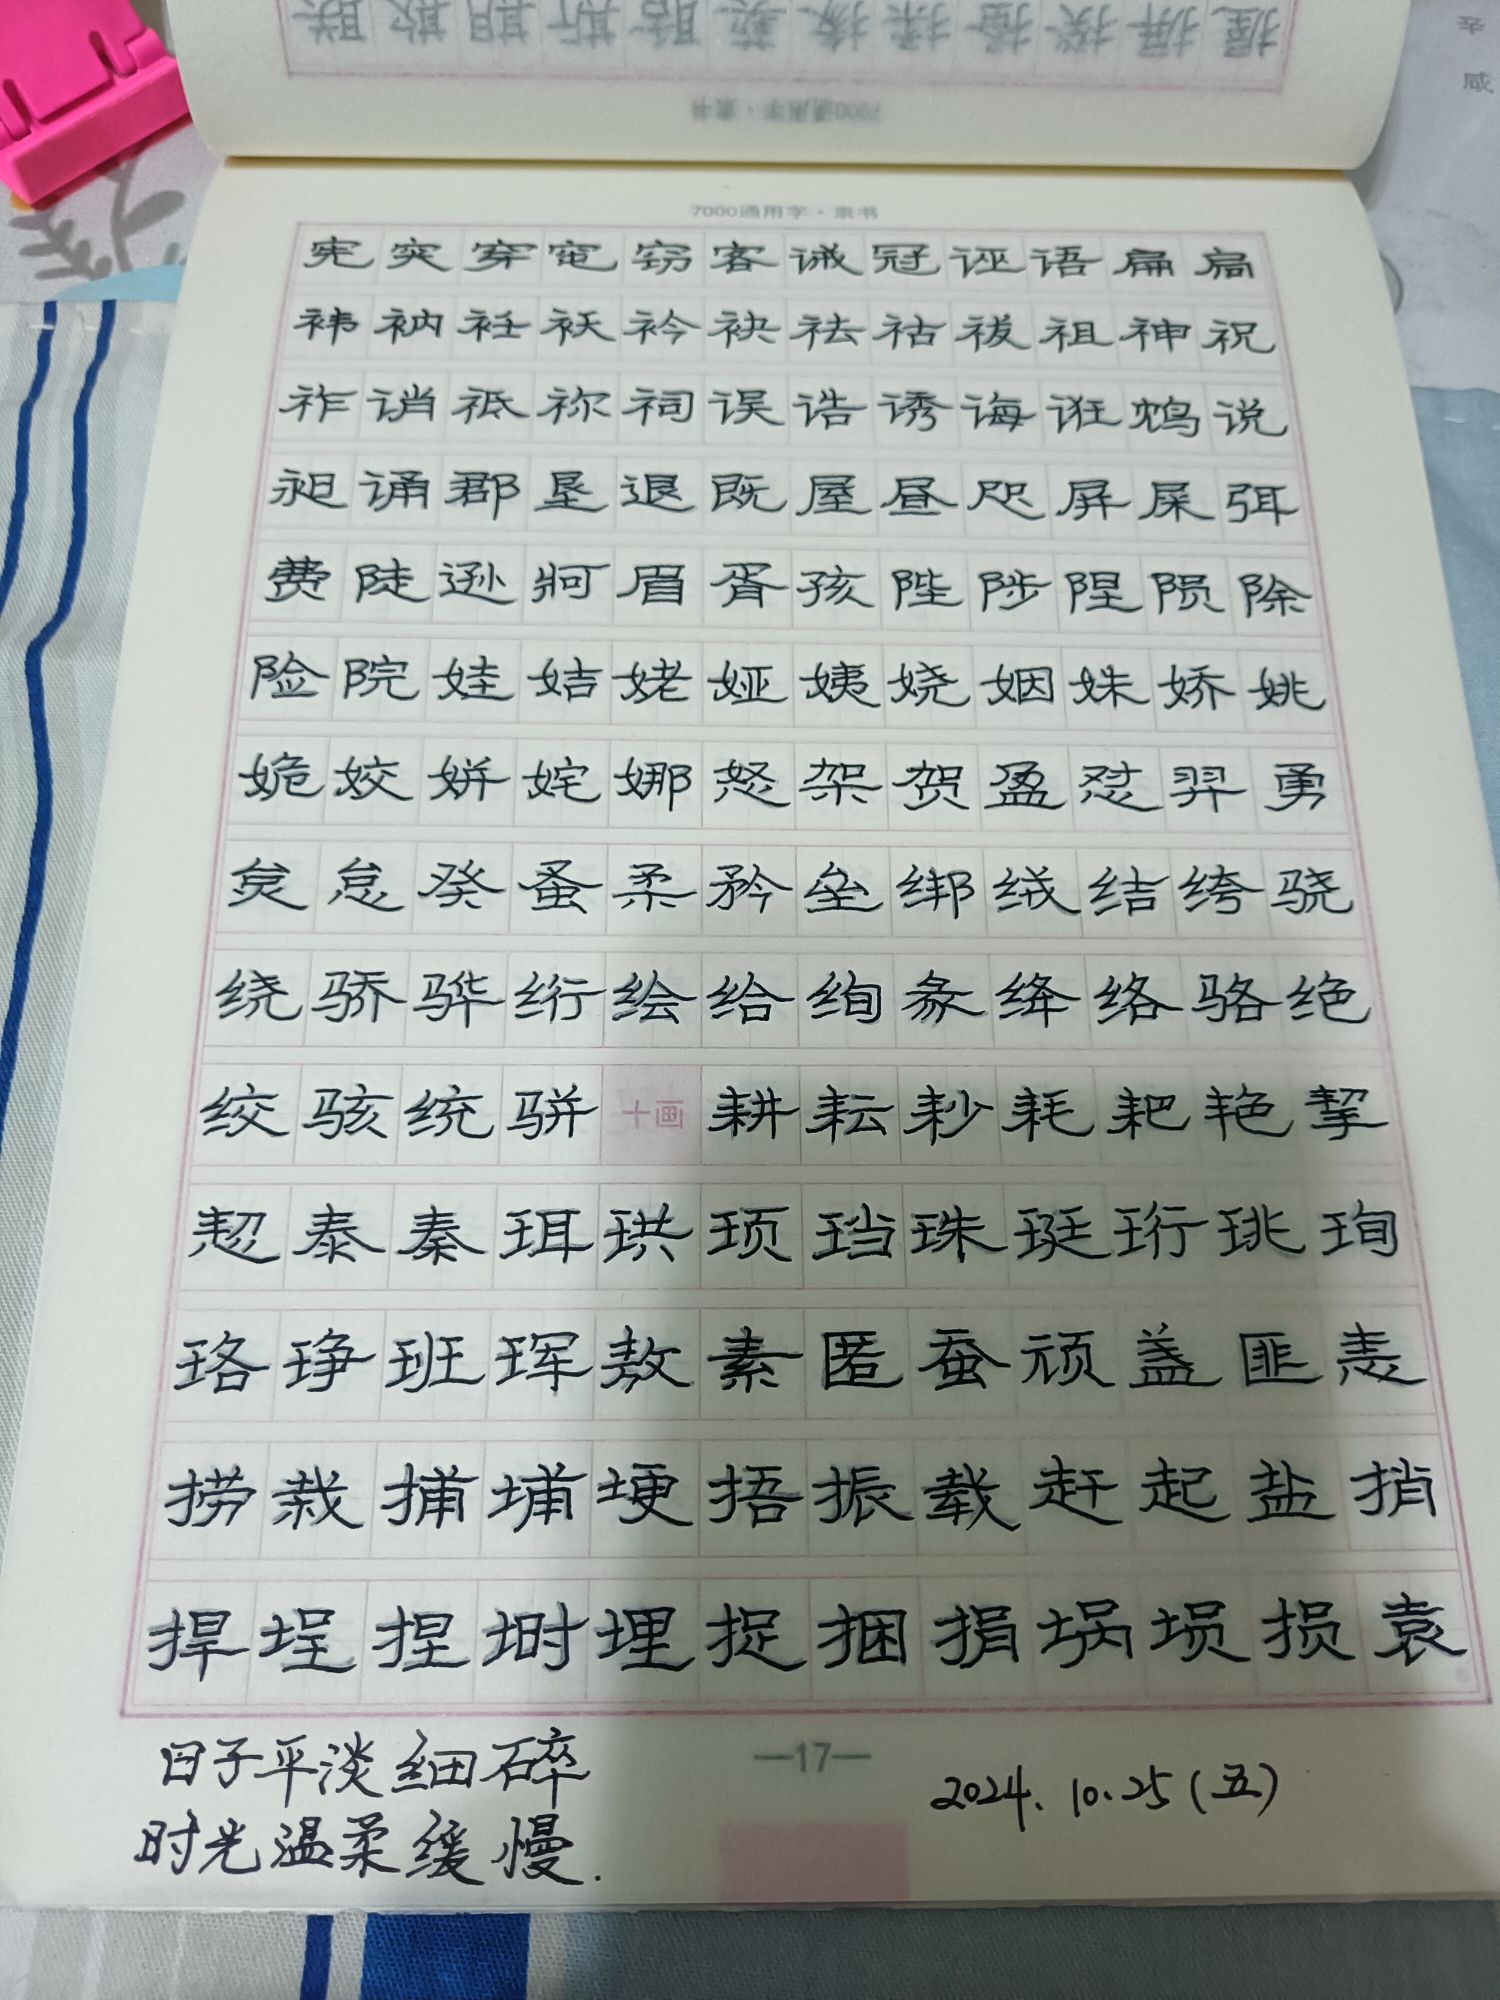 7000通用字·隶书
宪突穿窀窃客诫冠诬语扁扃
袆衲衽袄衿袂祛祜祓祖神祝
祚诮祗祢祠误诰诱诲诳鸩说
昶诵郡垦退既屋昼咫屏屎弭
费陡逊牁眉胥孩陛陟陧陨除
险院娃姞姥娅姨娆姻姝娇姚
姽姣姘姹娜怒架贺盈怼羿勇
炱怠癸蚤柔矜垒绑绒结绔骁
绕骄骅绗绘给绚彖绛络骆绝
绞骇统骈十画耕耘耖耗耙艳挈
恝泰秦珥珙顼珰珠珽珩珧珣
珞琤班珲敖素匿蚕顽盏匪恚
捞栽捕埔埂捂振载赶起盐捎
捍埕捏埘埋捉捆捐埚埙损袁
—17—
日子平淡细碎
时光温柔缓慢.
2024.10.25(五)